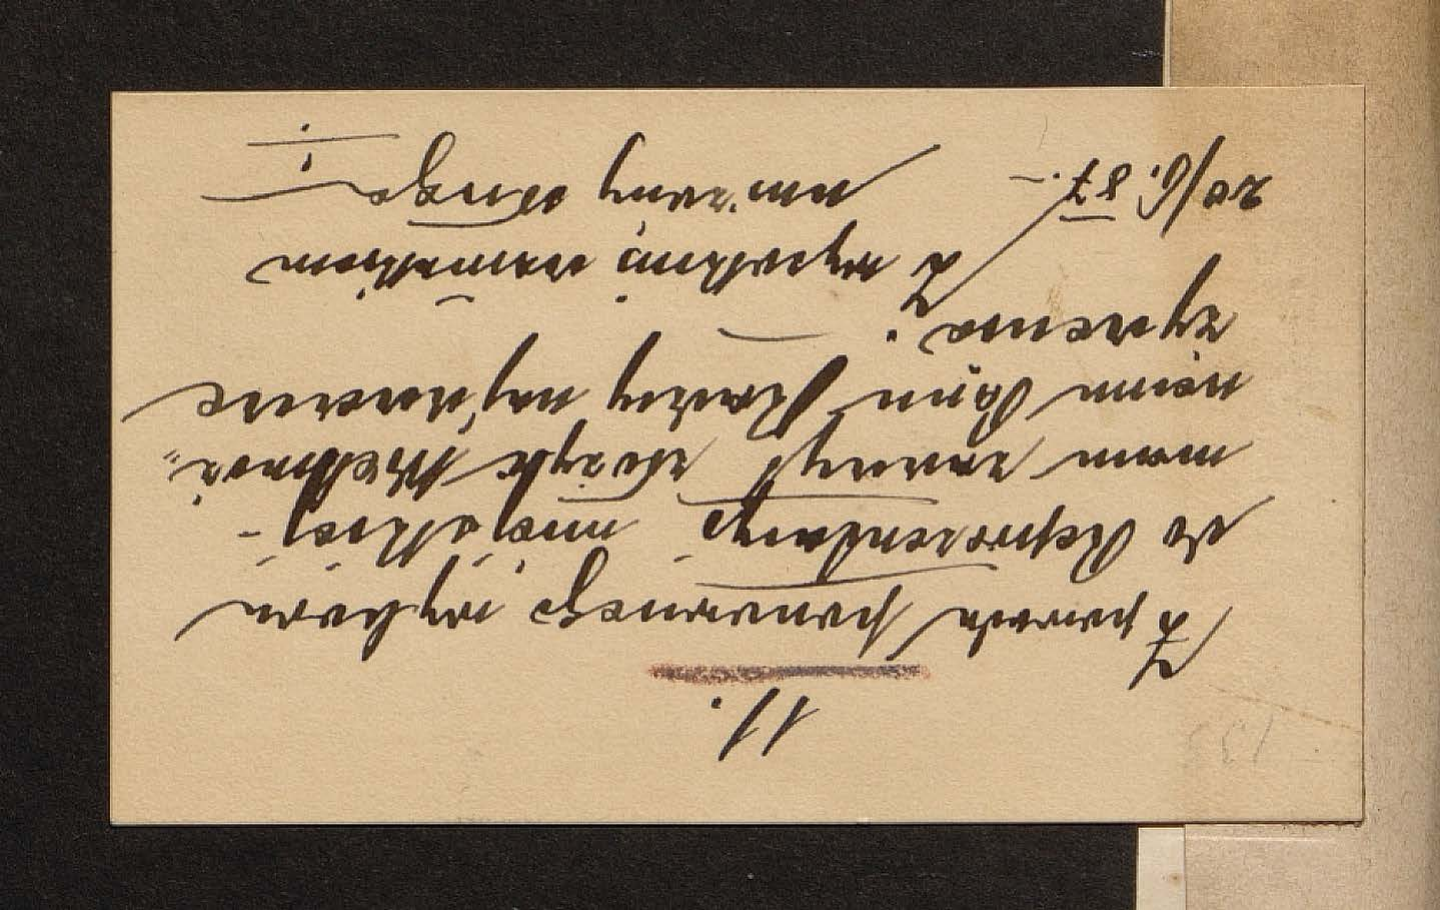 11.
Z powodu ponownego wyboru
do Reprezentacyi miejskiej
mam zaszczyt złożyć Wielmoż„
nemu Panu Radcy najszczersze
życzenia.
Z wysokim szacunkiem
uniżony sługa
20/6. 87.